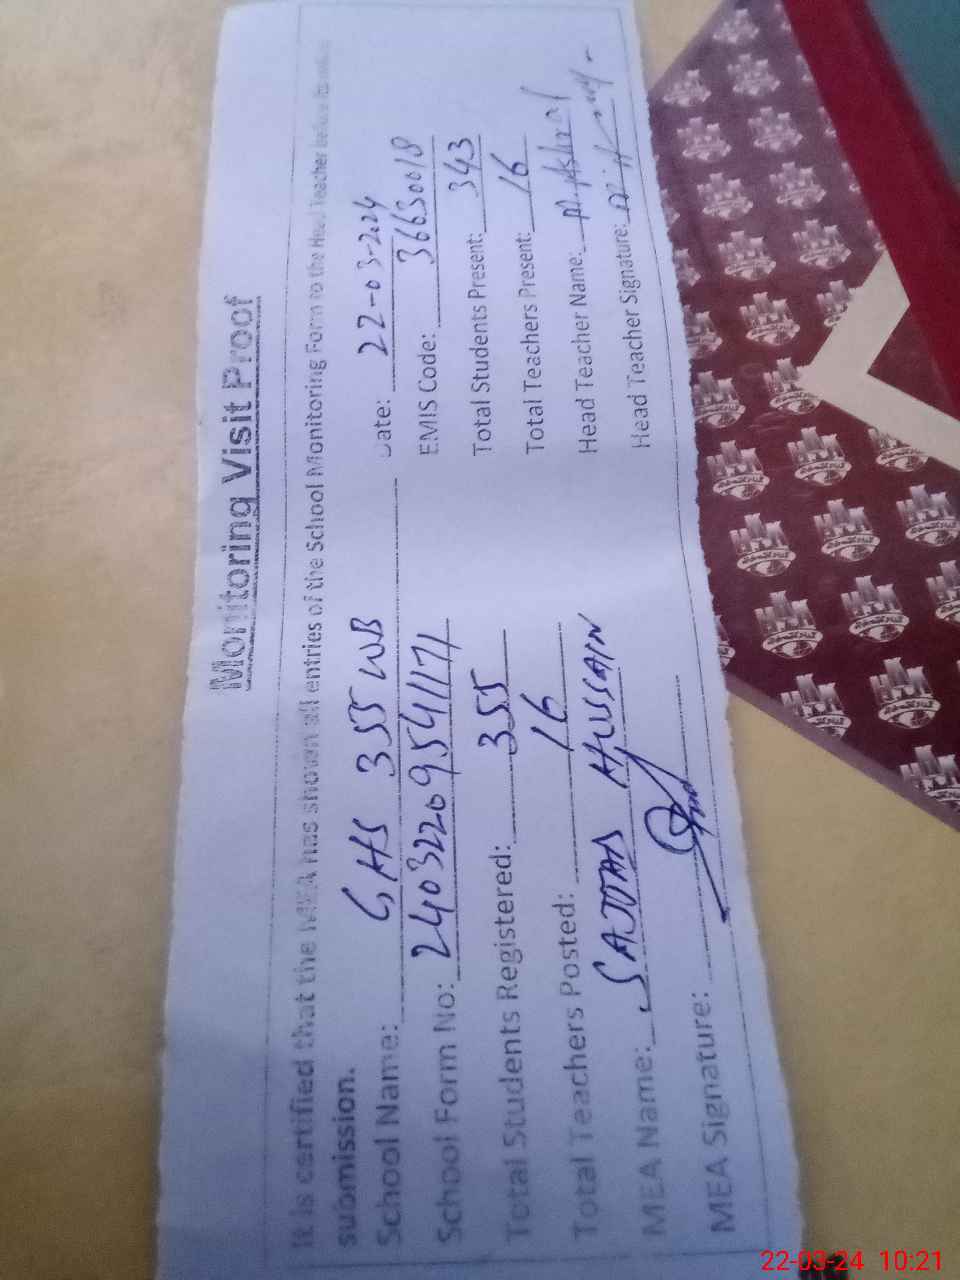 Monitoring Visit Proof
It is certified that the MEA has shown all entries of the School Monitoring Form to the Head Teacher before its
submission.
School Name: GHS 355 WB Date: 22-03-2024
School Form No: 2403226954117 EMIS Code: 36630018
Total Students Registered: 355 Total Students Present: 343
Total Teachers Posted: 16 Total Teachers Present: 16
MEA Name: SAJJAD HUSSAIN Head Teacher Name: M. Ashraf
MEA Signature: Head Teacher Signature:
22-03-24 10:21